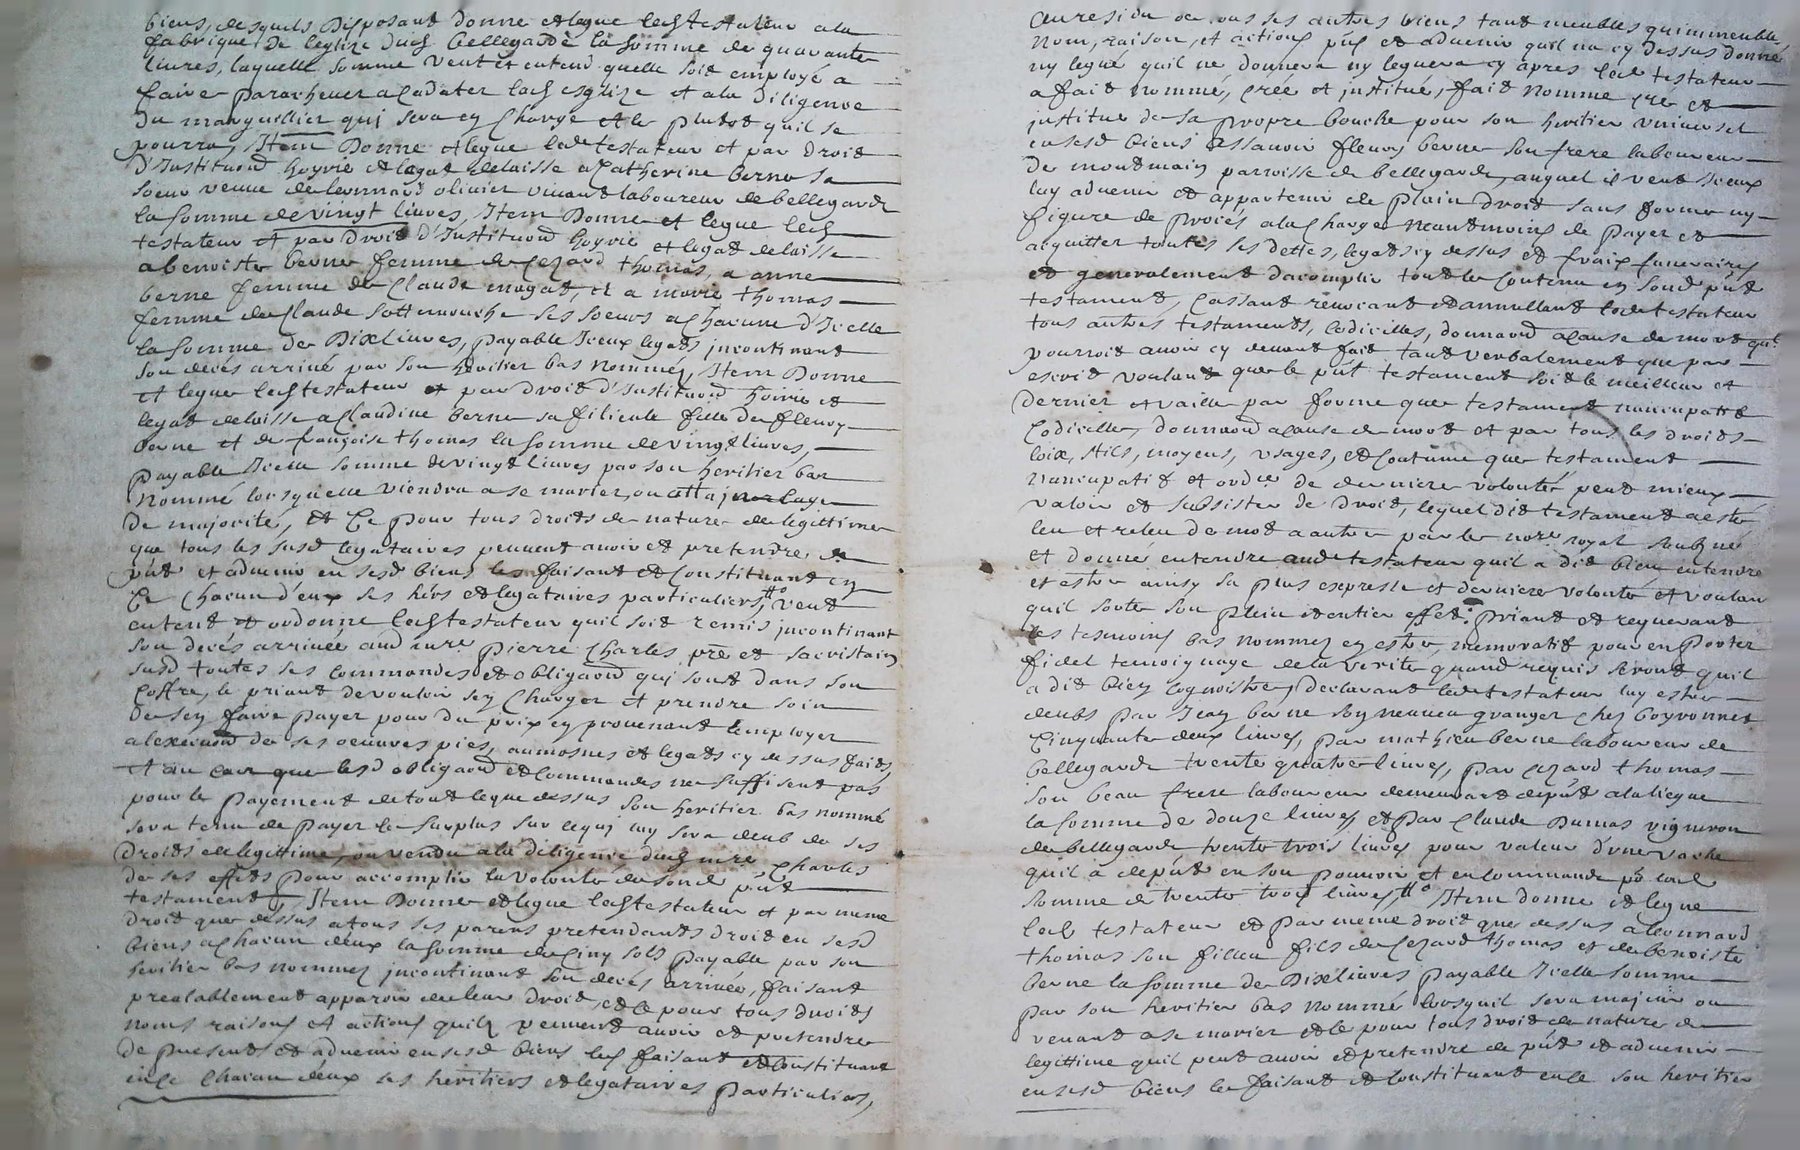 biens, desquels disposant donne et legue led testateur a la
fabrique de leglize dud bellegarde la somme de quarante
livres, laquelle somme veut et entend quelle soit employé a
faire parachever a cadater lad esglize et a la diligence
du marguillier qui sera en charge et le plutot quil se
pourra, Item Donne et legue led testateur et par droit
d'Institu͠on hoyrie et legat delaisse a Catherine berne sa
soeur veuve de leonnard olivier vivant laboureur de bellegarde
la somme de vingt livres, Item Donne et legue led
testateur et par droit d'Institu͠on hoyrie et legat delaisse
a benoiste berne femme de Cezard thomas, a anne
berne femme de Claude magat, et a marie thomas
femme de Claude sottemouche ses soeurs a chacune d'Icelle
la somme de Dix livres, payable Iceux legats jncontinant
son decés arrivé par son heritier bas nommé, Item Donne
et legue led testateur et par droit d'Institu͠on hoirie et
legat delaisse a Claudine berne sa filieule fille de fleury
berne et de françoise thomas la somme de vingt livres,
payable Icelle somme de vingt livres par son heritier bas
nommé lorsquelle viendra a se marier, ou
de majorité, et Ce pour tous droits de nature de legittime
que tous les susd legataires peuvent avoir et pretendre de
pnt et advenir en sesd biens les faisant et Constituant en
Ce Chacun d'eux ses hers et legataires particuliers, veut
entend et ordonne led testateur quil soit remis jncontinant
son decés arrivée aud mre pierre Charles pre et sacristain
susd toutes ses commandes et obliga͠on qui sont dans son
Coffre, le priant de vouloir sen Charger et prendre soin
de sen faire payer pour du prix en provenant lemployer
a lexecu͠on de ses oeuvres pies, aumosnes et legats cy dessus faits,
et au cas que lesd obliga͠on et Commandes ne suffisent pas
pour le payement de tout leque dessus son heritier bas nommé
sera tenu de payer le surplus sur cequi luy sera deub de ses
droits de legittime, ou vendu a la diligence dud mre Charles
de ses effets pour accomplir la volonté de sond pnt
testament, Item Donne et legue led testateur et par meme
droit que dessus a tous ses parens pretendants droit en sesd
biens a Chacun deux la somme de Cinq sols payable par son
heritier bas nommez jncontinant son decés arrivée, faisant
prealablement apparoir de leur droit, et Ce pour tous droits
noms raisons et actions quils peuvent avoir et pretendre
de present et advenir en sesd biens les faisant et Constituant
en Ce Chacun deux ses heritiers et legataires particuliers,
Au residu de tous ses autres biens tant meubles quimmeubles
Nom, raison, et actions pns et advenir quil na cy dessus donné
ny legué quil ne donnera ny leguera cy apres led testateur
a fait nommé, créé et jnstitué, fait nomme cré et
jnstitue de sa propre bouche pour son heritier universel
en sesd biens assavoir fleury berne son frere laboureur
de montmain parroisse de bellegarde, auquel il veut Iceux
luy advenir et appartenir de plain droit sans former ny
figure de procés a la charge neantmoins de payer et
acquitter toutes ses dettes, legats cy dessus et fraix funeraires
et generalement dacomplir tout le Contenu en sond pnt
testament, Cassant revocant et annullant led testateur
tous autres testaments, Codicilles, donna͠on a cause de mort quil
pourroit avoir cy devant fait tant verbalement que par
escrit voulant que le pnt testament soit le meilleur et
dernier et vaille par forme que testament nuncupatif
Codicille, donna͠on a cause de mort et par tous les droits
loix, stils, moyens, usages, et Coutume que testament
nuncupatif et ordre de derniere volonté peut mieux
valoir et subsister de droit, lequel dit testament a esté
leu et releu de mot a autre par le nore royal soubzné
et donné entendre aud testateur quil a dit bien entendre
et estre ainsy sa plus expresse et derniere volonté et voulan
quil sorte son plein et entier effet, priant et requerant
les tesmoins bas nommez en estre memoratif pour en porter
fidel temoignage de la verité quand requis seront quil
a dit bien Cognoistre, Declarant led testateur luy estre
deubs par Jean berne son neuveu granger chez boyronnet
Cinquante deux livres, par mathieu berne laboureur de
bellegarde trente quatre livres, par Cezard thomas
son beau frere laboureur demeurant depnt a la liegue
la somme de douze livres, et par Claude Dumas vigneron
de bellegarde trente trois livres pour valeur d'une vache
quil a depnt en son pouvoir et en Commande pr lad
somme de trente trois livres, Item donne et legue
led testateur et par meme droit que dessus a leonnard
thomas son filleu fils de Cezard thomas et de benoiste
berne la somme de Dix livres payable Icelle somme
par son heritier bas nommé lorsquil sera majeur ou
venant a se marier et Ce pour tous droit de nature de
legittime quil peut avoir et pretendre de pnt et advenir
en sesd biens le faisant et Constituant en Ce son heritier